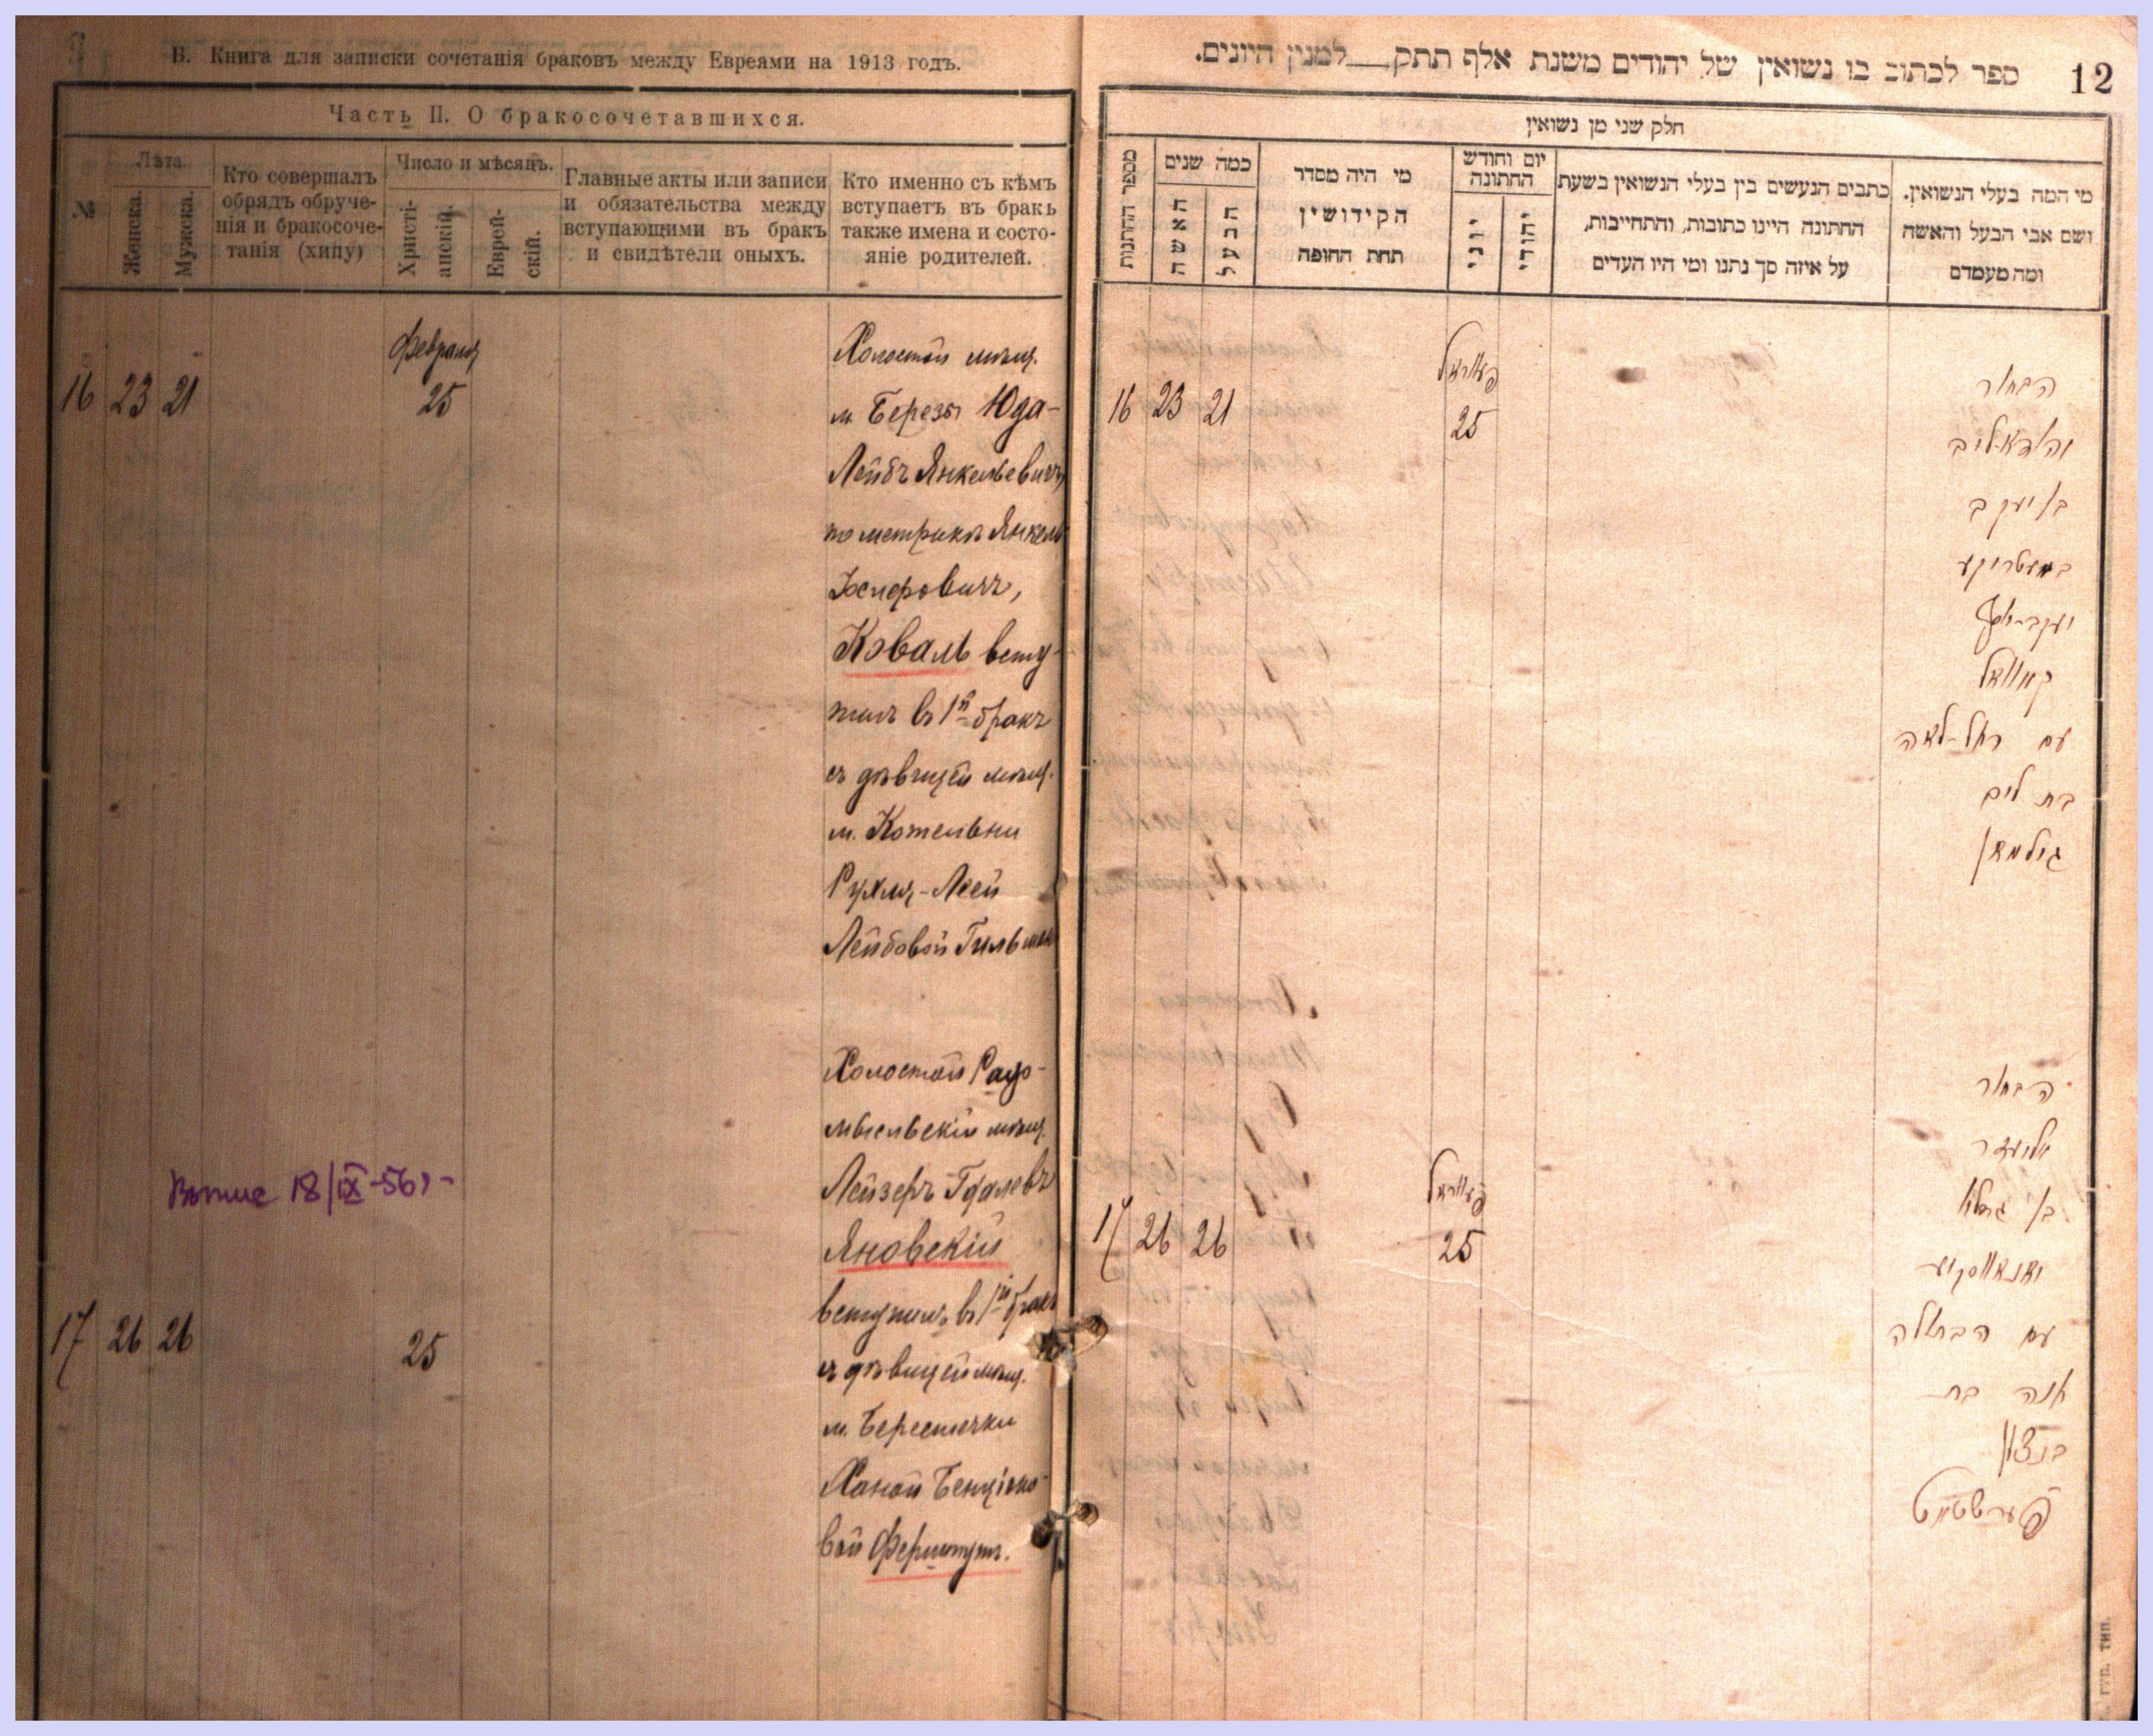 Б. Книга для записки сочетанія браковъ между Евреями на 1913 годъ.
Часть II. О бракосочетавшихся.
№
Лѣта.
Женска.
Мужска.
Кто совершалъ
обрядъ обруче-
нія и бракосоче-
танія (хипу)
Число и мѣсяцъ.
Христі-
анскій.
Еврей-
скій.
Главные акты или записи
и обязательства между
вступающими въ бракъ
и свидѣтели оныхъ.
Кто именно съ кѣмъ
вступаетъ въ бракъ
также имена и состо-
яніе родителей.
16 23 21
Февраля
25
Холостой мѣщ.
м. Березы Юда-
Лейбъ Янкелевичъ,
по метрикѣ Янкель
Іосифовичъ,
Коваль всту-
пилъ въ 1й бракъ
съ дѣвицей мѣщ.
м. Котельни
Рухля-Леей
Лейбовой Гильман
17 26 26
25
18/IX-56г
Холостой Радо-
мысльскій мѣщ.
Лейзеръ Гдалевъ
Яновскій
вступилъ въ 1й бракъ
съ дѣвицей мѣщ.
м. Берестечки
Ханой Бенціоно-
вой Ферштутъ.
12
ספר לכתוב בו נשואין של יהודים משנת אלף תתק למנין היונים.
חלק שני מן נשואין
מספר החתונות
כמה שנים
האשה
הבעל
מי היה מסדר
הקידושין
תחת החופה
יום וחודש
החתונה
יוני
יהודי
כתבים הנעשים בין בעלי הנשואין בשעת
החתונה היינו כתובות, והתחייבות,
על איזה סך נתנו ומי היו העדים
מי המה בעלי הנשואין.
ושם אבי הבעל והאשה
ומה מעמדם
16 23 21
25
הבחור
בן יעקב
במעטריקע
יעקב-יוסף
קאוואל
עם רחל-לאה
בת ליב
גילמאן
17 26 26
25
הבחור
אליעזר
בן גדליה
יאנאווסקיע
עם הבתולה
חנה בת
בנציון
פערשטוט